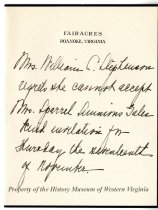 FAIRACRES
ROANOKE, VIRGINIA
Mrs. William C. Stephenson
regrets she cannot accept
Mrs. Sparrel Simmons Gale's
kind invitation for
Thursday the seventeenth
of November
Property of the History Museum of Western Virginia